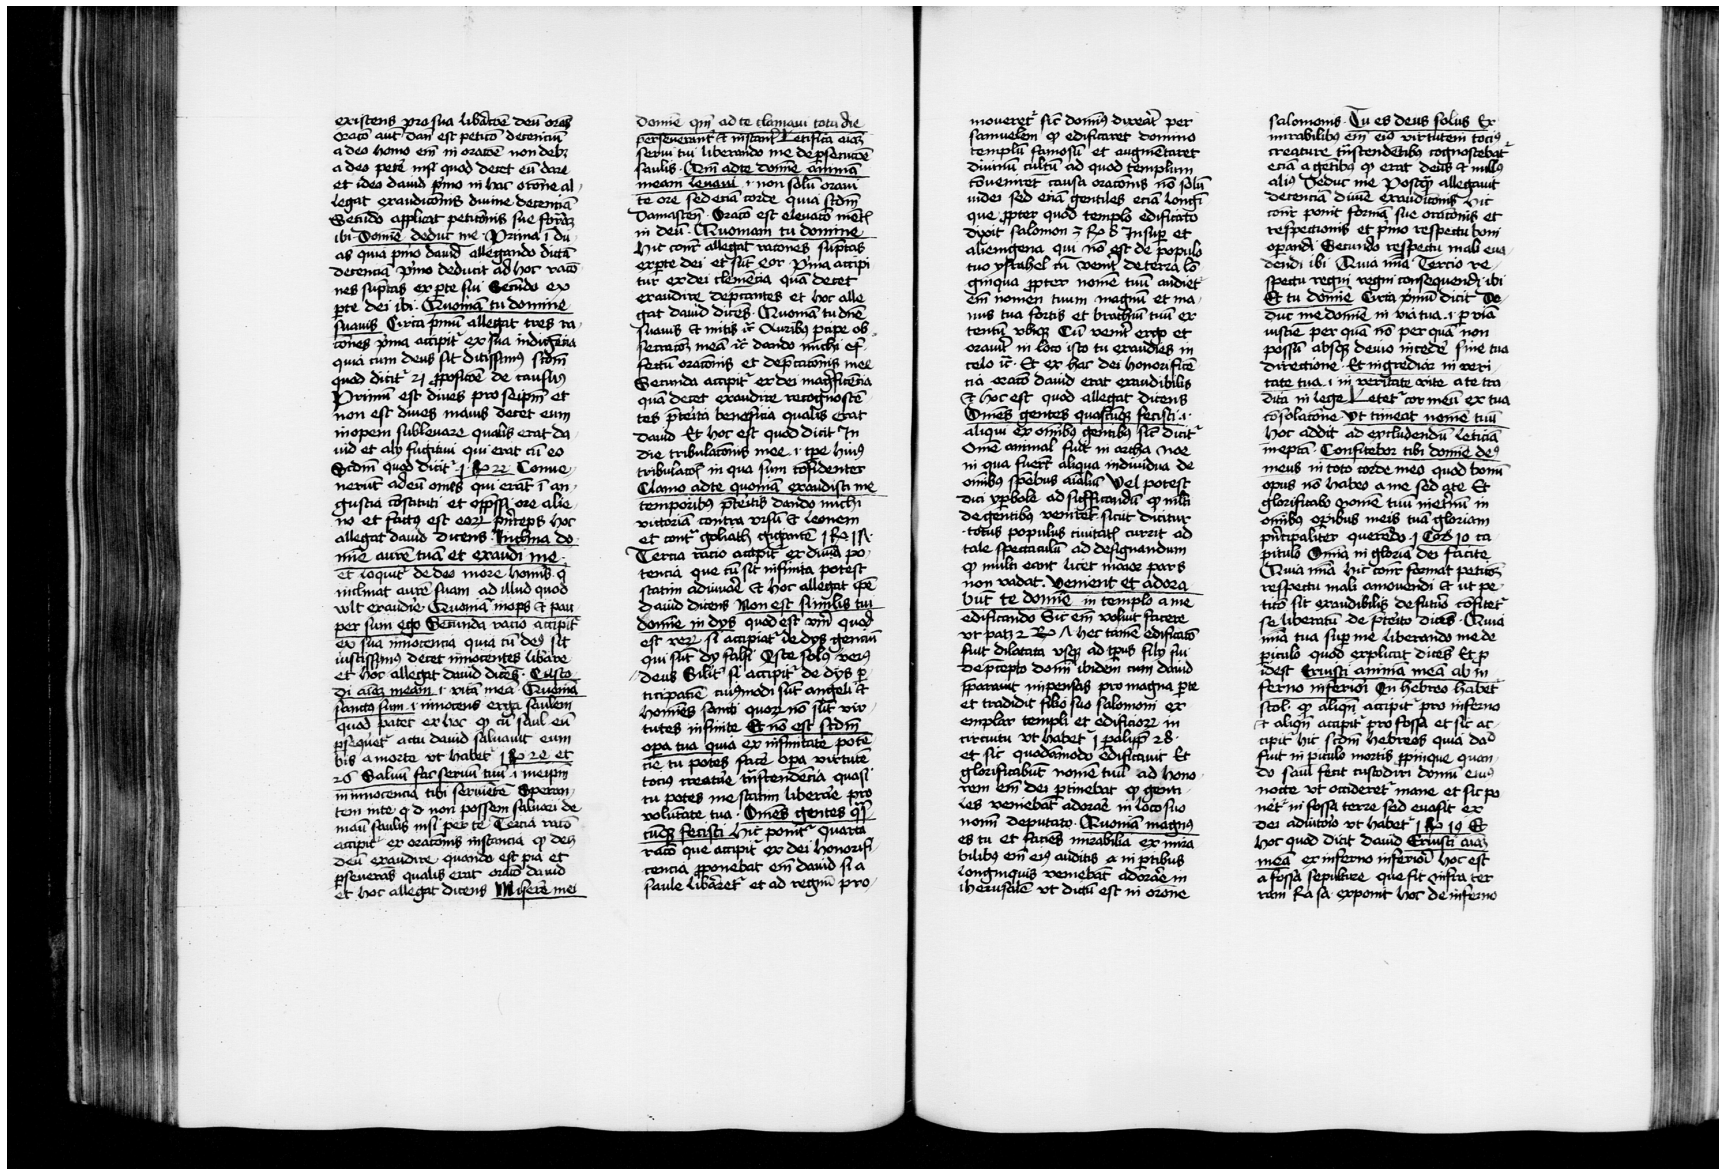 existens pro sua libãcõe deũ orãs
oracõ aut̃ dan̄ est peticõ decenciũ
a deo homo em̃ in oracõe non debꝫ
a deo pete͛ nisi quod decet eũ dare
et ideo dauid p͛mo in hac or̃one al-
legat exaudicõnis diuine decenciã
Secũdo applicat peticõnis sue formã
ibi Domĩe deduc me Prima ĩ du
as quia p͛mo dauid allegando dictã
decenciã p͛mo deducit ad hoc racõ
nes suptas ex p̱te sui Secũdo ex
p̱te dei ibi Quoniã tu domine
suauis Circa p͛mũ allegat tres ra
cõnes p͛ma accipit͛ ex sua indigẽcia
quia cum deus sit ditissimꝰ scdm̃
quod dicit͛ 21 ꝓposicõe de causis
Primũ est diues pro seip̃m et
non est diues maius decet eum
inopem subleuare qualis erat da
uid et alij fugitiui qui erãt cũ eo
Scdm̃ quod dicit͛ 1 Re 22 Conue
nerũt ad eũ om̃es qui erãt ĩ an
gustia cõstituti et opp̃ssi ere alie
no et factus est eoꝝ p͛nceps hoc
allegat dauid dicens Inclina do
mĩe aurẽ tuã et exaudi me
et loquit͛ de deo more homĩs q͛
inclinat aurẽ suam ad illud quod
wlt exaudire Quoniã inops et pau
per sum ego Secunda racio accipit͛
ex sua innocencia quia cũ deꝰ sit
iustissimꝰ decet innocentes libãre
et hoc allegat dauid dicẽs Custo
di aĩaꝫ meam .i. vitã meã Quoniã
sanctus sum .i. innocens erga saulem
quod patet ex hoc ꝙ cũ saul eũ
p̱sequet͛ actu dauid saluauit eum
bis a morte vt habet͛ 1 Re 24 et
26 Saluũ fac seruũ tuũ .i. meip̃m
in innocencia tibi seruiẽtẽ Speran
tem in te q d non possem saluari de
manu saulis nisi per te Tercia racõ
accipit͛ ex oracõnis instancia ꝙ deꝰ
deũ exaudire quando est pia et
p̱seuerãs qualis erat oracõ dauid
et hoc allegat dicens Miserere mei
domĩe qm̃ ad te clamaui tota die
perseuerant͛ et instant͛ Letifica aĩaꝫ
serui tui liberando me de p̱secucõe
saulis Qm̃ ad te domĩe animã
meam leuaui .i. non solũ oraui
te ore sed eciã corde quia scdm̃
Damascen̄ Oracõ est eleuacõ mẽtꝭ
in deũ Quoniam tu domine
Hic cont͛ allegat racõnes suptas
ex p̱te dei et sũt 4or p͛ma accipi
tur ex dei clemẽcia quã decet
exaudire dep̃cantes et hoc alle
gat dauid dicẽs Quoniã tu dñe
suauis et mitis ⁊c͛ Auribus p̱cipe ob
secracõeꝫ meã ⁊c͛ dando michi ef
fectũ oracõnis et dep̃cacõnis mee
Secunda accipit͛ ex dei mag͛ficẽcia
quã decet exaudire recognoscẽ
tes p̃terita beneficia qualis erat
dauid Et hoc est quod dicit͛ In
die tribulacõnis mee .i. tp̃e huiꝰ
tribulacõꝭ in qua sum cõfidenter
Clamo ad te quoniã exaudisti me
temporibus p̃teritis dando michi
victoriã contra vrsũ et leonem
et cont͛ goliath gigantẽ 1 R 17
Tercia racio accipit͛ ex diuĩa po
tencia que cũ sit infinita potest
statim adiuuãe et hoc allegat ip̃e
dauid dicens Non est similis tui
domĩe in dijs quod est vm̃ quod
est veꝝ si accipiat͛ de dijs genciũ
qui sũt dij falsi Q̃ste solꝰ verꝰ
deus Silĩt͛ si accipit͛ de dijs p̱
ticipatiẽ cuiꝰmodi sũt angeli et
homĩes sancti quoꝝ nõ sũt vir
tutes infinite Et nõ est scdm̃
opa tua quia ex infinitate potẽ
cie tu potes face͛ op̱a virtutẽ
tociꝰ creat͛e tñscendencia quasi
tu potes me statim liberãe pro
volũtate tua Om̃es gentes qͣs
cũqꝫ fecisti Hic ponit͛ quarta
racõ que accipit͛ ex dei honorifi
cencia ꝓponebat em̃ dauid si a
saule libãret͛ et ad regnũ pro
moueret͛ sic͛ domĩꝰ dixeãt per
samuelem ꝙ edificaret domino
templũ famosũ et augmẽtaret
diuinũ cultũ ad quod templum
cõueniret causa oracõnis nõ solũ
iudei sed eciã gentiles eciã longĩ
que p̱pter quod templo edificato
dixit salomon 3 Re 8 Insup̱ et
alienigena qui nõ est de populo
tuo yrahel cũ veñit de terra lõ
ginqua p̱pter nomẽ tuũ audiet͛
em̃ nomen tuum magnũ et ma
nus tua fortis et brachiũ tuũ ex
tentũ vbiqꝫ Cũ veñit ergo et
orauit͛ in loco isto tu exaudies in
celo ⁊c͛ Et ex hac dei honorificẽ
cia oracõ dauid erat exaudibilis
et hoc est quod allegat dicens
Om̃es gentes quascũqꝫ fecisti .i.
aliqui ex omĩbus gentibus sic͛ dicit͛
Om̃e animal fuit in archa Noe
in qua fuer̃t aliqua indiuidua de
omĩbus sp̃ebus aĩaliũ Vel potest
dici yp̱bole ad sig͛ficandũ ꝙ m̃lti
de gentibus venirẽt sicut dicitur
totus populus ciuitatꝭ currit ad
tale spectaculũ ad designandum
ꝙ multi eant licet maior pars
non vadat Venient et adora
bũt te domĩe in templo a me
edificando Sic em̃ voluit facere
vt patꝫ 2 Re 7 hec tamẽ edificacõ
fuit dilatata vsqꝫ ad tp̃us filij sui
de p̱cepto domĩ ibidem cum dauid
p̃parauit inpensas pro magna p̱te
et tradidit filio suo salomoni ex
emplar templi et edificioꝝ in
circuitu vt habet͛ 1 paralipp̃ 28
et sic quodãmodo edificauit Et
glorificabũt nomẽ tuũ ad hono
rem em̃ dei p̱tinebat ꝙ genti
les veniebãt adorãe in loco suo
nomĩ deputato Quoniã magnꝰ
es tu et faciẽs mirabilia ex mira
bilibus em̃ eiꝰ auditis a in p̱tibus
longinquis veniebãt adorãe in
iherusalẽ vt dictũ est in or̃one
salomonis Tu es deus solus Ex
mirabilibus em̃ eiꝰ virtutem tociꝰ
creature tñscendẽtibꝰ cognoscebat͛
eciã a gẽtibus ꝙ erat deus et nullꝰ
aliꝰ Deduc me Postqͣ̃ allegauit
decenciã diuĩe exaudicõnis hic
cont͛ ponit formã sue oracõnis et
respectionis et p͛mo respectu boni
op̱andi Secundo respectu mali eua
dendi ibi Quia mĩa Tercio re
spectu regni regni consequendi ibi
Et tu domĩe Circa p͛mũ dicit De
duc me domĩe in via tua .i. p̱ viã
iusticie per quã nõ per quã non
possũ absqꝫ deuio incede͛ sine tua
directione Et ingrediar in veri
tate tua .i. in veritate vite a te tra
dita in lege Letet͛ cor meũ ex tua
cõsolacõne Vt timeat nomẽ tuũ
hoc addit ad excludendũ leticiã
ineptã Confitebor tibi domĩe deꝰ
meus in toto corde meo quod bonũ
opus nõ habeo a me sed a te Et
glorificabo nomẽ tuũ in et͛nũ in
omĩbus op̱ibus meis tuã gloriam
p͛ncipaliter querẽdo 1 Cor̃ 10 ca
pitulo Om̃ia in gloriã dei facite
Quia mĩa hic cont͛ format peticõꝫ
respectu mali amouendi et vt pe
ticõ sit exaudibilis de futuro cõfitet͛
se liberatũ de p̃terito dicẽs Quia
mĩa tua sup̱ me liberando me de
p̱iculo quod explicat dicẽs Et p̱
idest Eruisti animã meã ab in
ferno inferiori In hebreo habet͛
scol͛ ꝙ aliqñ accipit͛ pro inferno
et aliqñ accipit͛ pro fossa et sic ac
cipit͛ hic scdm̃ hebreos quia daᵈ
fuit in p̱iculo mortis p̱pinque quan
do saul fecit custodiri domũ eiꝰ
nocte vt occideret͛ mane et sic po
net͛ in fossa terre sed euasit ex
dei adiutorio vt habet͛ 1 Re 19 Et
hoc quod dicit dauid Eruisti aĩaꝫ
meã ex inferno inferiori hoc est
a fossa sepulture que fit infra ter
ram Ra sa exponit hoc de inferno